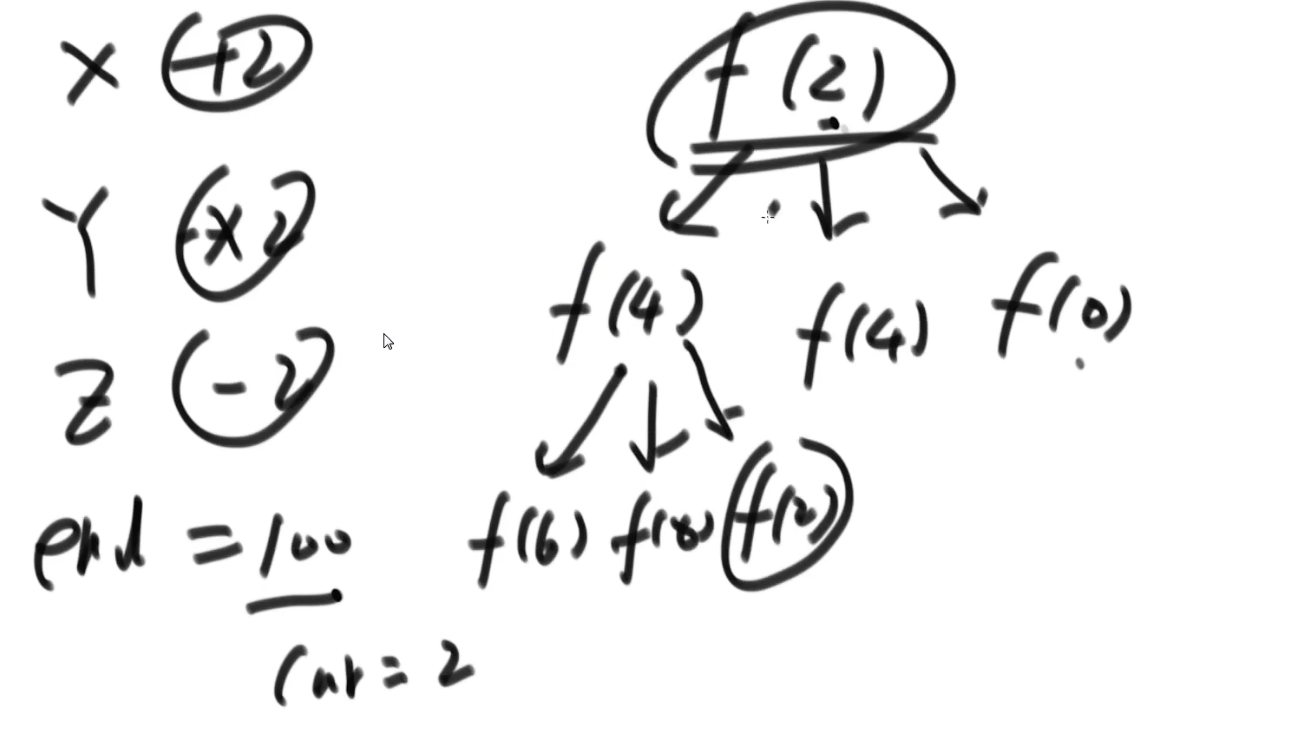 X +2
Y ×2
Z -2
end = 100
cur = 2
f(2)
f(4) f(4) f(0)
f(6) f(8) f(2)